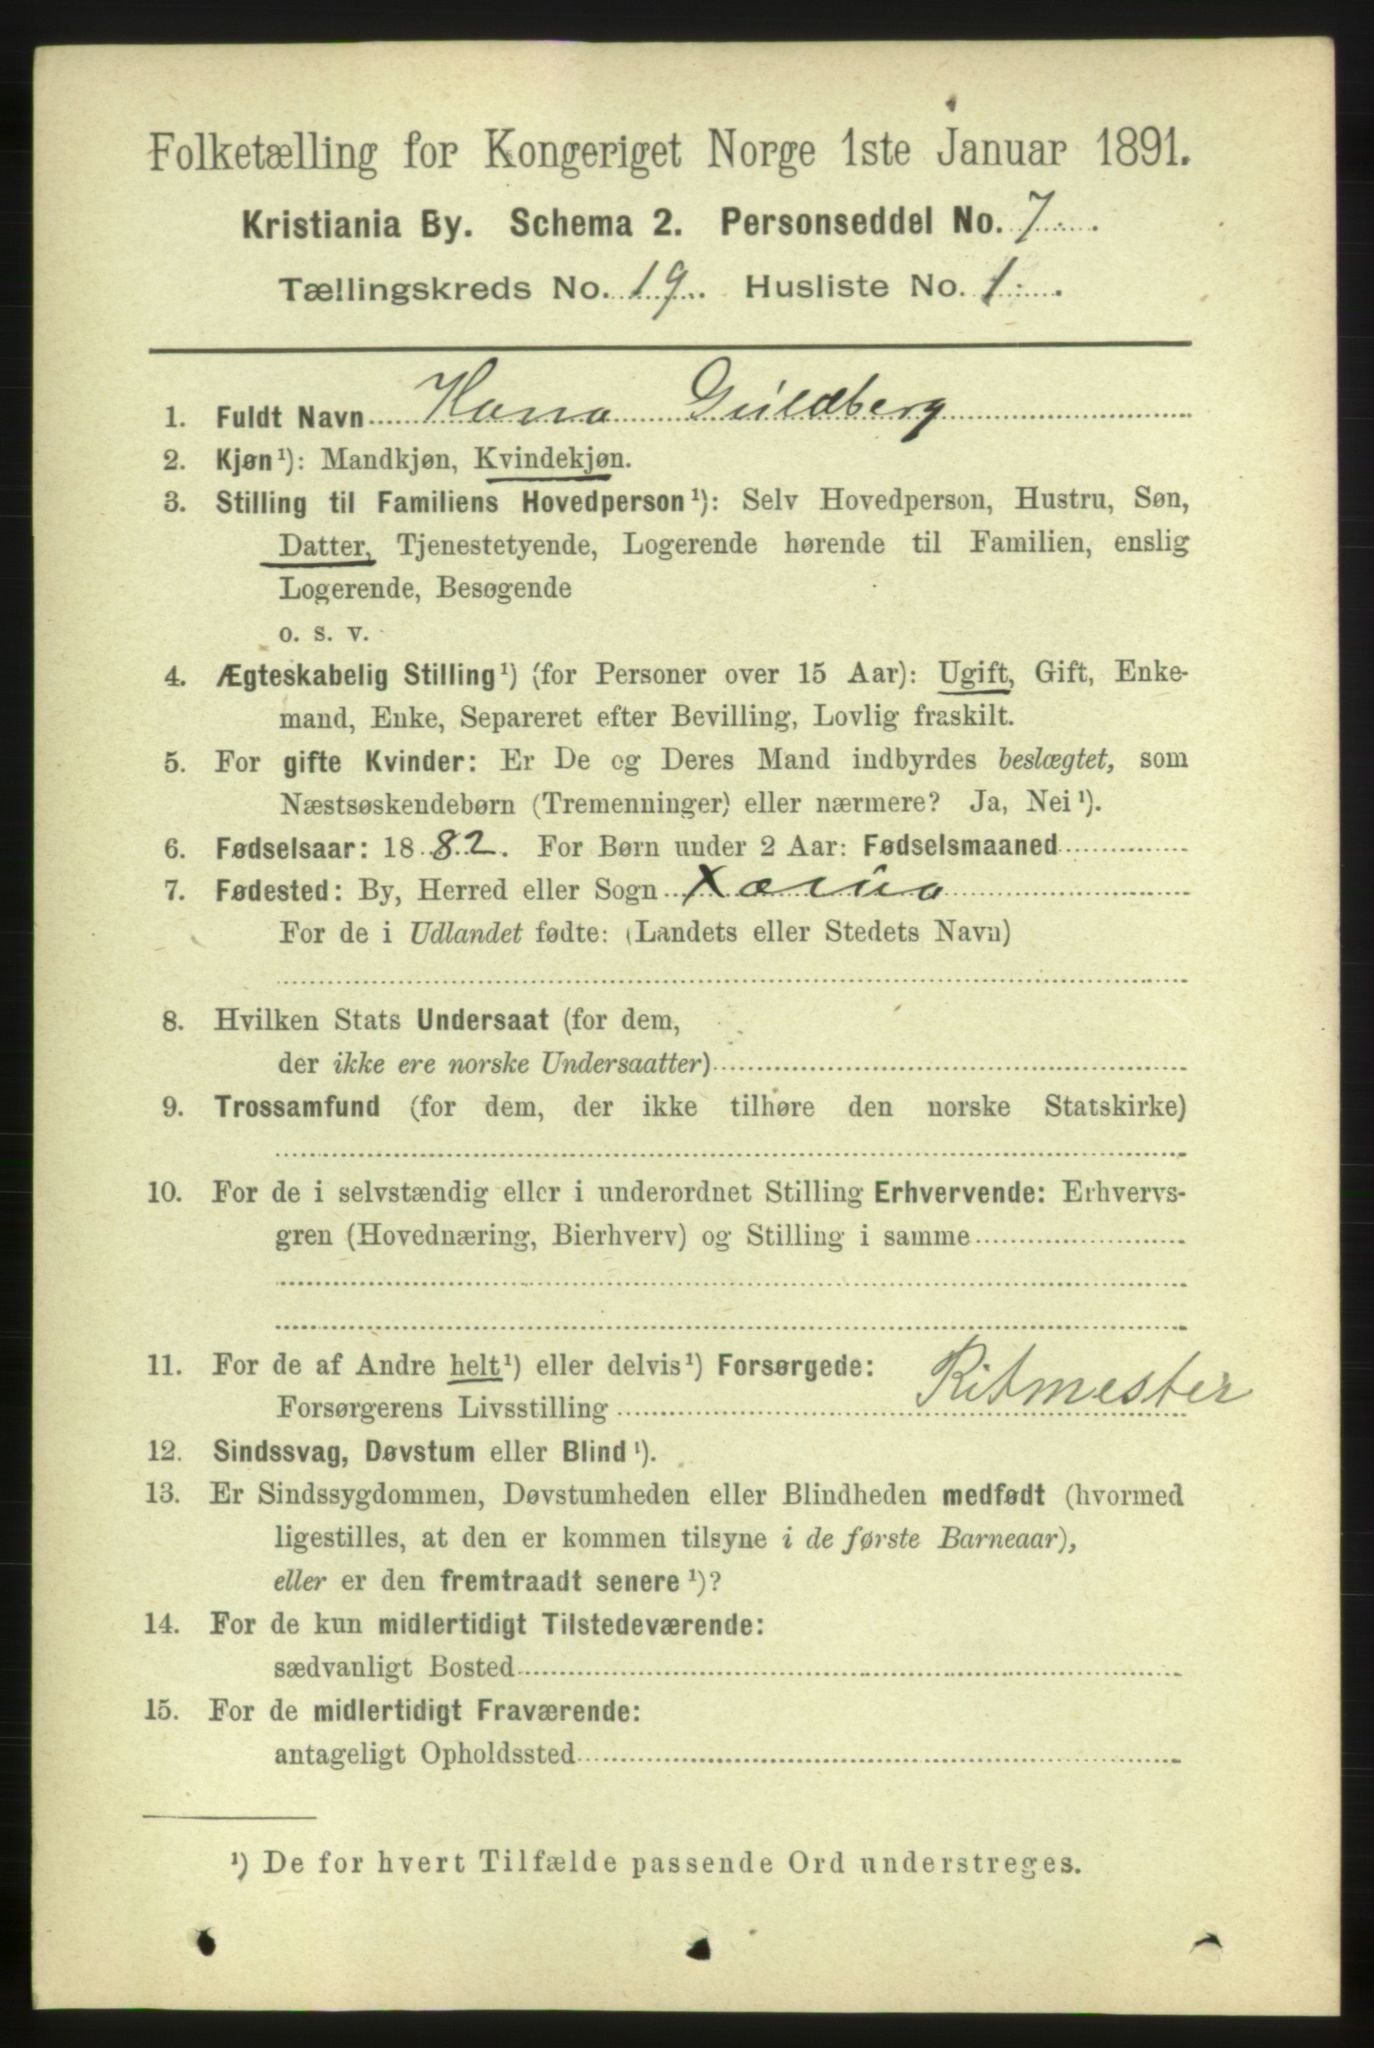 Folketælling for Kongeriget Norge 1ste Januar 1891.
Kristiania By. Schema 2. Personseddel No. 7
Tællingskreds No. 19. Husliste No. 1.
1. Fuldt Navn Guldberg
2. Kjøn¹): Mandkjøn, Kvindekjøn.
3. Stilling til Familiens Hovedperson¹): Selv Hovedperson, Hustru, Søn,
Datter, Tjenestetyende, Logerende hørende til Familien, enslig
Logerende, Besøgende
o. s. v.
4. Ægteskabelig Stilling¹) (for Personer over 15 Aar): Ugift, Gift, Enke-
mand, Enke, Separeret efter Bevilling, Lovlig fraskilt.
5. For gifte Kvinder: Er De og Deres Mand indbyrdes beslægtet, som
Næstsøskendebørn (Tremenninger) eller nærmere? Ja, Nei¹).
6. Fødselsaar: 1882. For Børn under 2 Aar: Fødselsmaaned
7. Fødested: By, Herred eller Sogn
For de i Udlandet fødte: (Landets eller Stedets Navn)
8. Hvilken Stats Undersaat (for dem,
der ikke ere norske Undersaatter)
9. Trossamfund (for dem, der ikke tilhøre den norske Statskirke)
10. For de i selvstændig eller i underordnet Stilling Erhvervende: Erhvervs-
gren (Hovednæring, Bierhverv) og Stilling i samme
11. For de af Andre helt¹) eller delvis¹) Forsørgede:
Forsørgerens Livsstilling Ritmester
12. Sindssvag, Døvstum eller Blind¹).
13. Er Sindssygdommen, Døvstumheden eller Blindheden medfødt (hvormed
ligestilles, at den er kommen tilsyne i de første Barneaar),
eller er den fremtraadt senere¹)?
14. For de kun midlertidigt Tilstedeværende:
sædvanligt Bosted
15. For de midlertidigt Fraværende:
antageligt Opholdssted
¹) De for hvert Tilfælde passende Ord understreges.